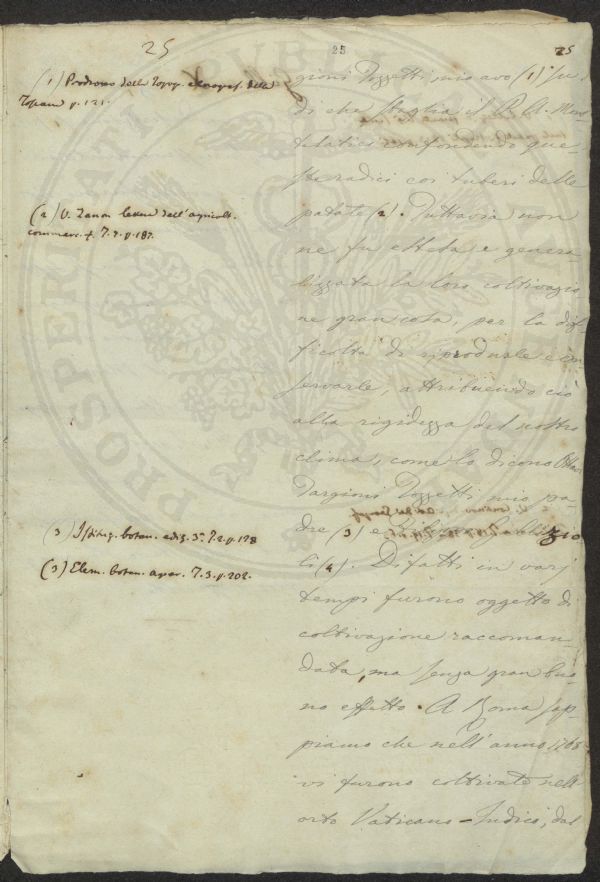 25
25
25
(1) Prodromo della Topogr. della
Toscana p. 121.
(2) V. Zanon lettere dell'agricolt.
commerc. T. 7. p. 187.
(3) Istituz. botan. ediz. 3ª. T. 2. p. 128
(3) Elem. botan. agrar. T. 3. p. 202.
gioni Tozzetti, mio avo (1) su
di che sbaglia il
confondendo que-
ste radici coi tuberi delle
patate (2). Tuttavia non
ne fu estesa e genera
lizzata la loro coltivazio
ne gran cosa, per la dif
ficoltà di riprodurle e con
servarle, attribuendo ciò
alla rigidezza del nostro
clima, come lo dicono Ottav.
Targioni Tozzetti mio pa-
dre (3) e
(4). Difatti in varj
tempi furono oggetto di
coltivazione raccoman-
data, ma senza gran buo-
no effetto. A Roma sap-
piamo che nell'anno 1765
vi furono coltivate nell'
orto Vaticano-Indico, dal